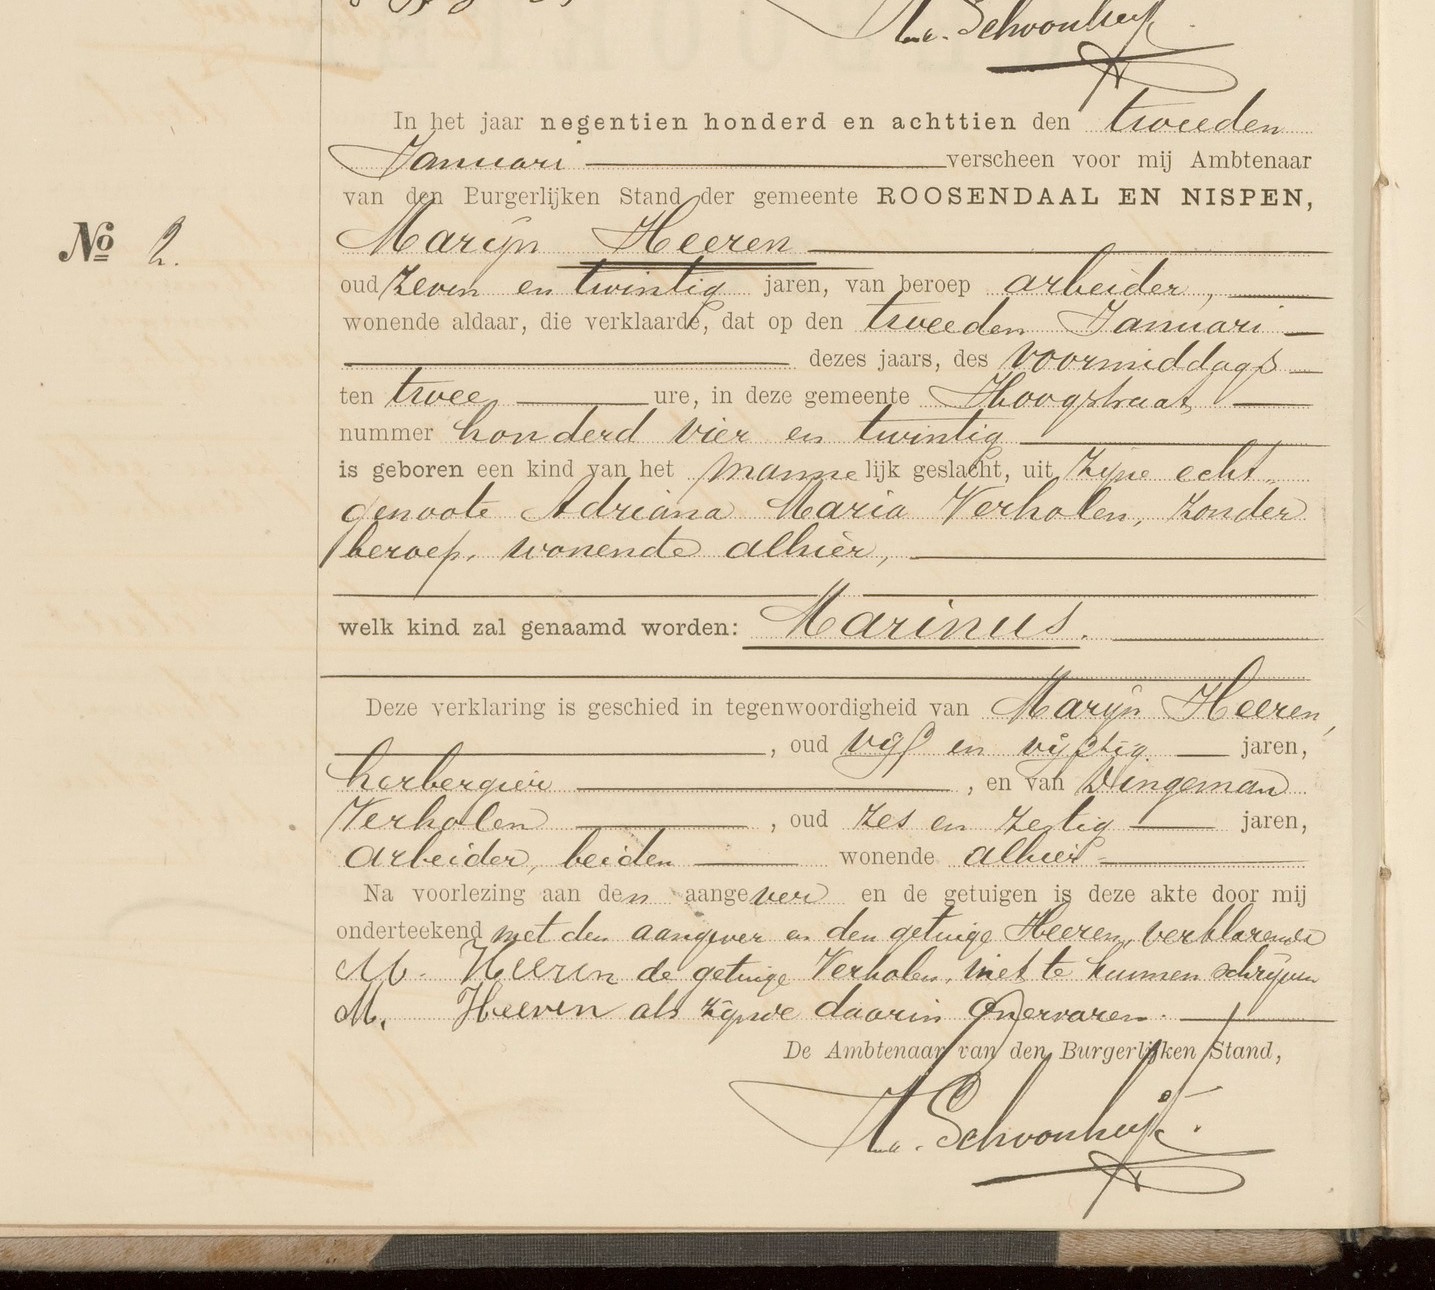 M. Schoonheyt.
In het jaar negentien honderd en achttien den tweeden
Januari verscheen voor mij Ambtenaar
van den Burgerlijken Stand der gemeente ROOSENDAAL EN NISPEN,
No 2.
Marijn Heeren
oud zeven en twintig jaren, van beroep arbeider,
wonende aldaar, die verklaarde, dat op den tweeden Januari
dezes jaars, des voormiddags
ten twee ure, in deze gemeente Hoogstraat
nummer honderd vier en twintig
is geboren een kind van het mannelijk geslacht, uit zijne echt-
genoote Adriana Maria Verholen, zonder
beroep, wonende alhier,
welk kind zal genaamd worden: Marinus.
Deze verklaring is geschied in tegenwoordigheid van Marijn Heeren,
, oud vijf en vijftig jaren,
herbergier , en van Dingeman
Verholen , oud zes en zestig jaren,
arbeider, beiden wonende alhier
Na voorlezing aan den aangever en de getuigen is deze akte door mij
onderteekend met den aangever en den getuige Heeren, verklarende
M. Heeren de getuige Verholen, niet te kunnen schrijven
M. Heeren als zijnde daarin onervaren.
De Ambtenaar van den Burgerlijken Stand,